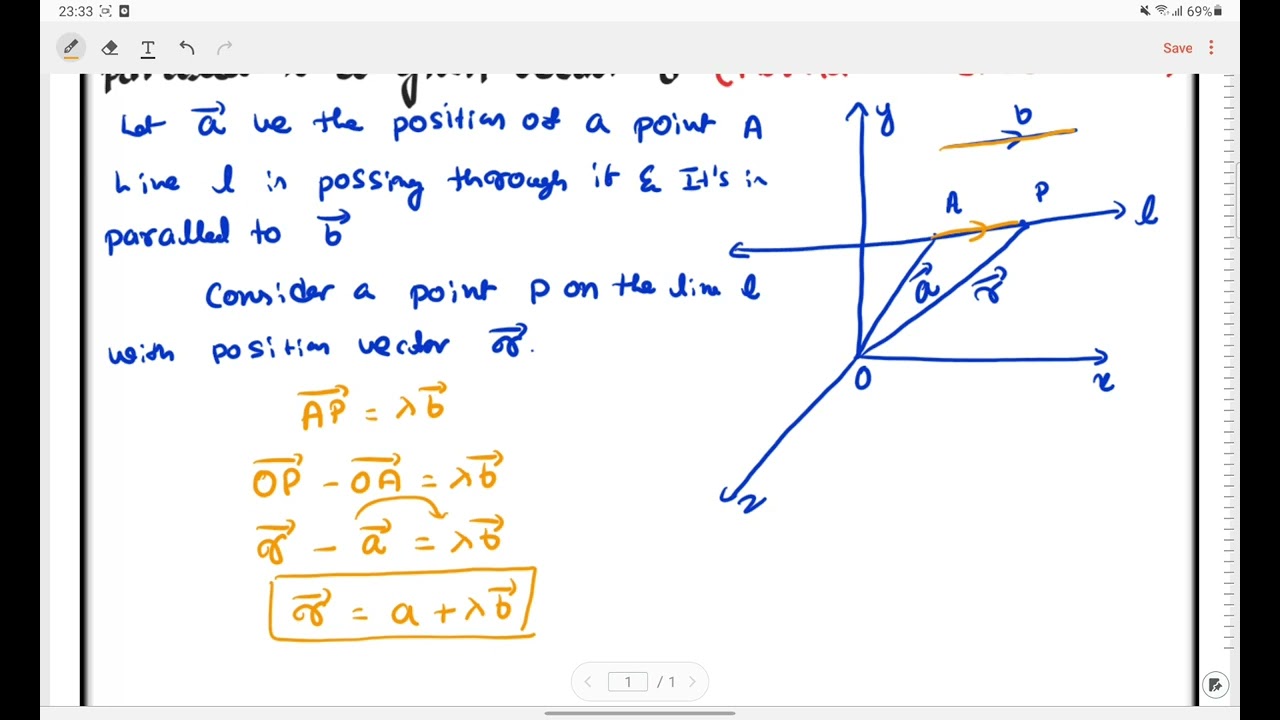 23:33
69%
T
Save
Let a⃗ ve the position of a point A
Line l is possing thorough it & It's is
paralled to b⃗
Consider a point P on the line l
with position vector r⃗.
AP⃗ = λb⃗
OP⃗ - OA⃗ = λb⃗
r⃗ - a⃗ = λb⃗
r⃗ = a + λb⃗
y
b
A
P
l
a⃗
r⃗
O
x
z
1 / 1